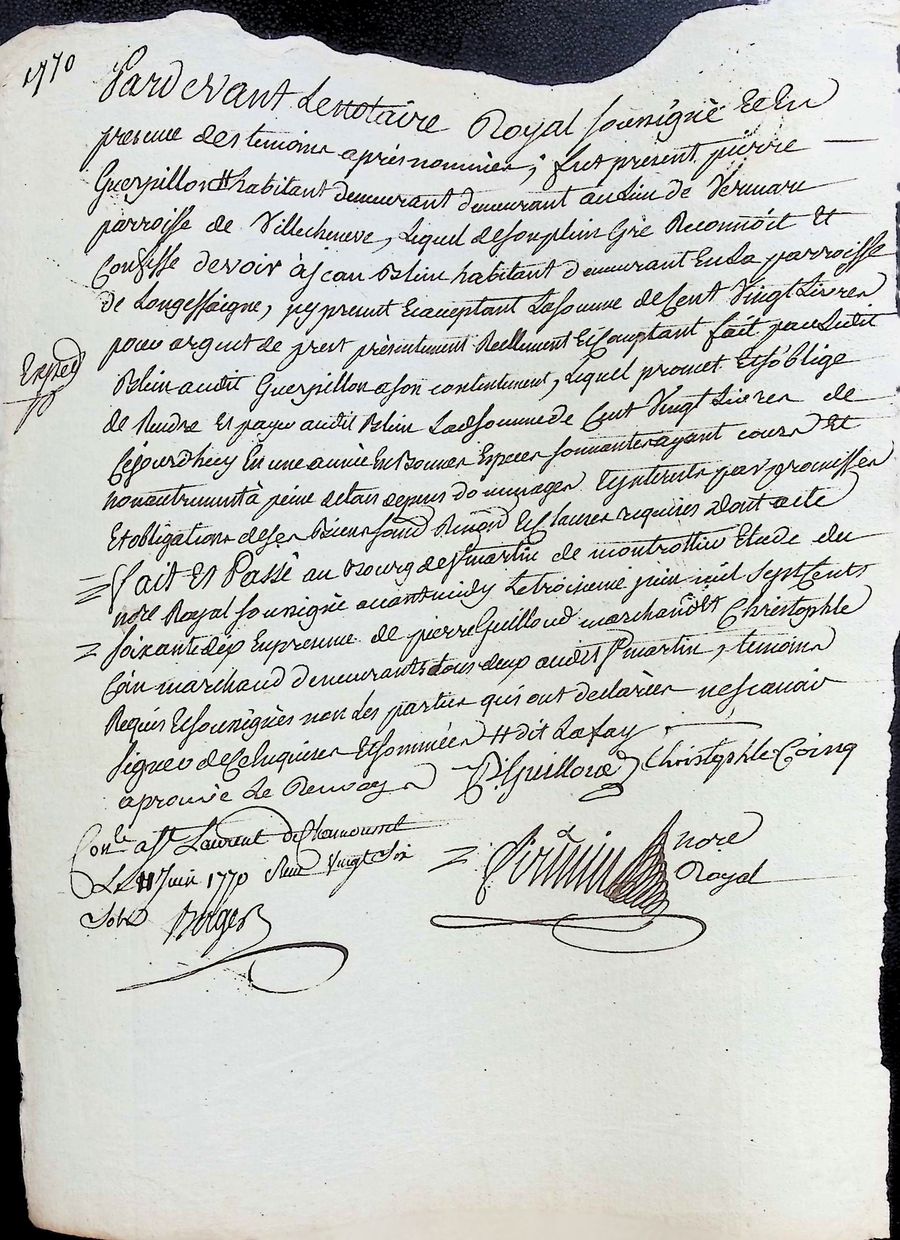 1770
Pardevant Le notaire Royal soussigné Et En
presence des temoins aprés nommées, fut present pierre
Guerpillon # habitant demeurant demeurant au Lieu de Vermaru
parroisse de Villecheneve, Lequel de son plein Gré Reconnoit Et
Confesse devoir à Jean Blein habitant demeurant En La parroisse
de Longessaigne, icy present Et acceptant La somme de Cent Vingt Livres
pour argent de prest presentement Reellement Et Comptant fait par Ledit
Expéd
Blein audit Guerpillon a son contentement, Lequel promet Et s'oblige
de Rendre Et payer audit Blein Lad somme de Cent Vingt Livres de
Cejourdhuy En une année En Bonnes Especes sonnantes ayant cours Et
non autrement à peine de tous depens domages Et interets par promesses
Et obligations de ses Biens sound Renond Et Clauses requises dont acte
fait Et Passé au Bourg de St martin de montrottier Etude du
nore Royal soussigné avant midy Le troizieme juin mil sept Cents
soixante dix En presence de pierre Guilloud marchand Et Christophle
Coin marchand demeurants tous deux audit St martin, temoins
Requis Et soussignés non Les parties qui ont declarées ne scavoir
signer de Ce Enquises Et sommées # dit Lafay
aprouvé Le Renvoy
P Guilloud Christophle Coing
Conlé a St Laurent de Chamousset
Le 11 Juin 1770 Reçu Vingt six
Sols Roger
nore
Royal